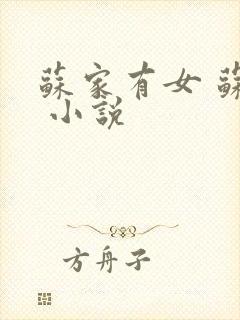 蘇家有女 蘇
小說
方舟子